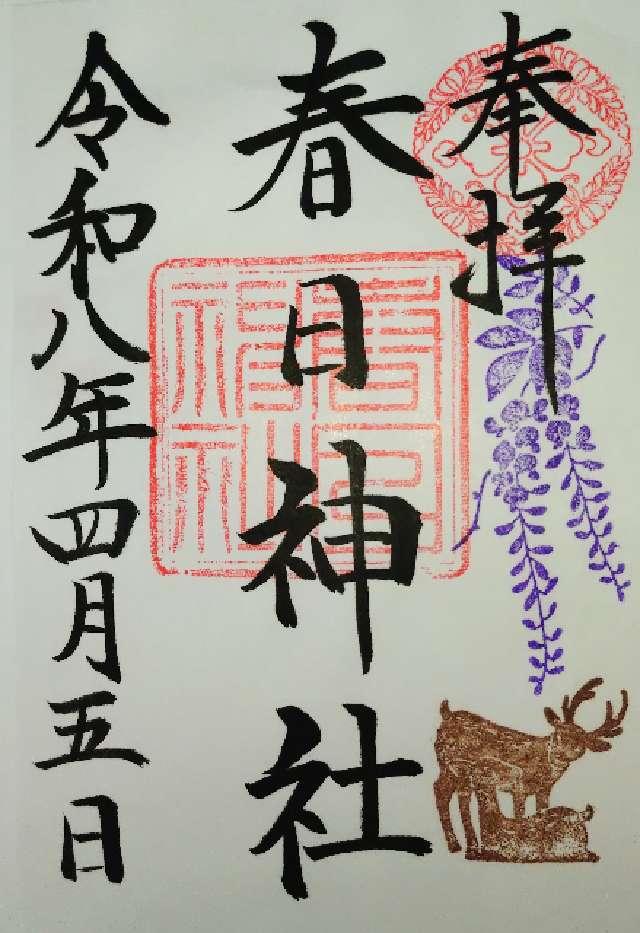 奉拝
春日神社
春日神社
令和八年四月五日